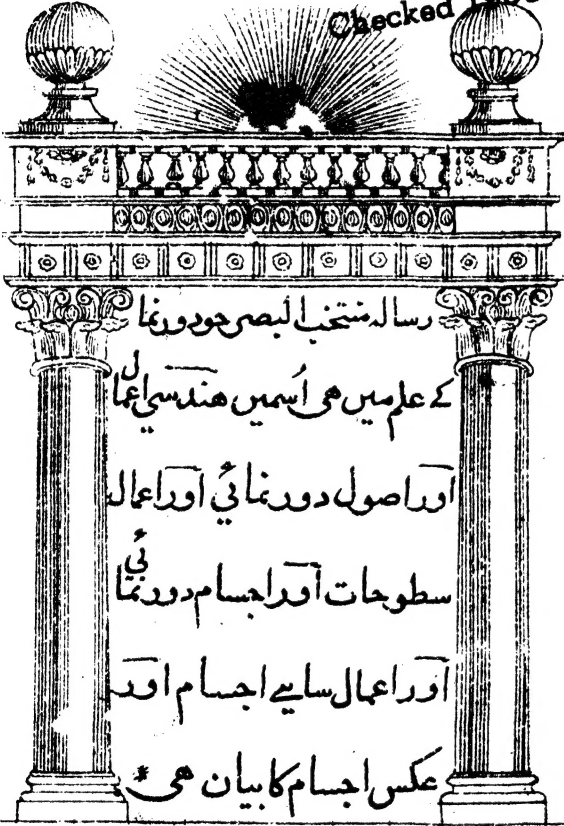 Checked
رسالہ منتخب البصر جو دور نما
کے علم میں ھی اُسمیں ھندسي اعمال
اور اصول دور نمائي اور اعمال
سطوحات اور اجسام دور نمائي
اور اعمال سایے اجسام اور
عکس اجسام کا بیان ھی *